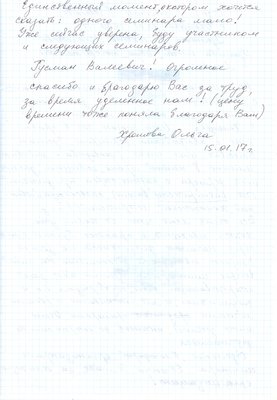 Единственный момент, о котором хочется
сказать: одного семинара мало!
Уже сейчас уверена, буду участником
и следующих семинаров.
Гусман Валеевич! Огромное
спасибо и благодарю Вас за труд,
за время уделенное нам! (цену
времени тоже поняла благодаря Вам)
Ольга
15.01.17г.